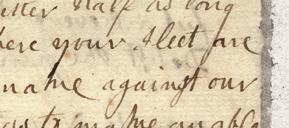 half as long
here your Fleet are
name against our
to make an able